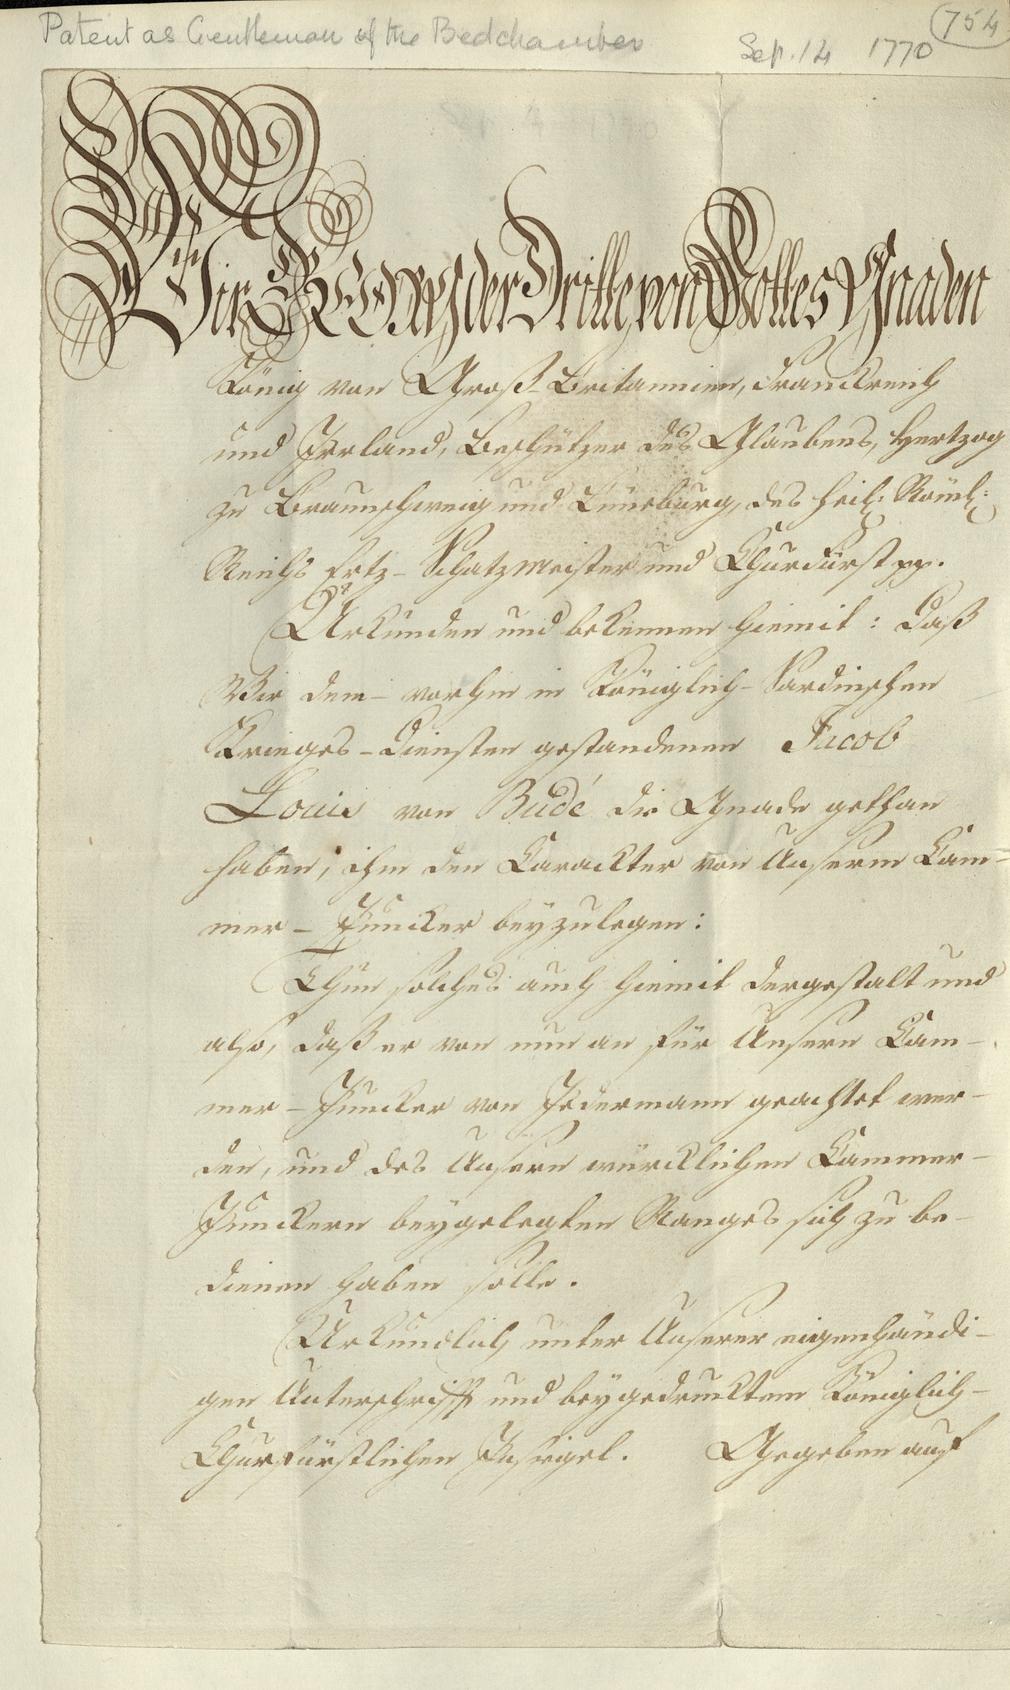 Patent as Gentleman of the Bedchamber
Sep. 14 1770
754
Wir GEORG der Dritte, von Gottes Gnaden
König von Groß-Britannien, Franckreich
und Irrland, Beschützer des Glaubens, Hertzog
zu Braunschweig und Lüneburg, des heil: Röm:
Reichs Ertz-Schatzmeister und Churfürst pp.
Urkunden und bekennen hiemit: Daß
Wir dem - vorhin in Königlich-Sardinischen
Krieges-Diensten gestandenen Jacob
Louis von Budé die Gnade gethan
haben, ihm den Carackter von Unserm Cam-
mer-Juncker beyzulegen:
Thun solches auch hiemit dergestalt und
also, daß er von nun an für Unsern Cam-
mer-Juncker von Jedermann geachtet wer-
den, und des Unsern würcklichen Cammer-
Junckern beygelegten Ranges sich zu be-
dienen haben solle.
Urkundlich unter Unserer eigenhändi-
gen Unterschrifft und beygedrucktem Königlich-
Churfürstlichen Insiegel. Gegeben auf